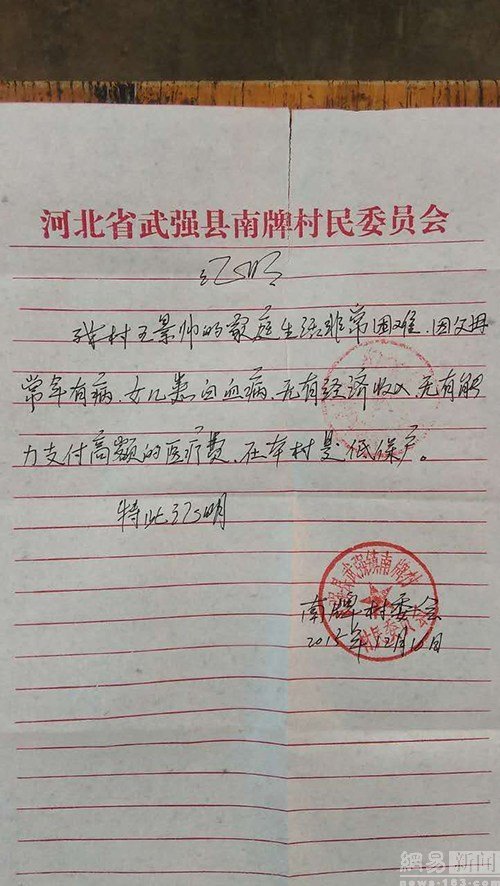 河北省武强县南牌村民委员会
证明
我村王景帅的家庭生活非常困难.因父母
常年有病、女儿患白血病、无有经济收入、无有能
力支付高额的医疗费、在本村是低保户。
特此证明
武强县武强镇南牌村
村民委员会
南牌村委会
2015年12月10日
網易 新闻
news.163.com